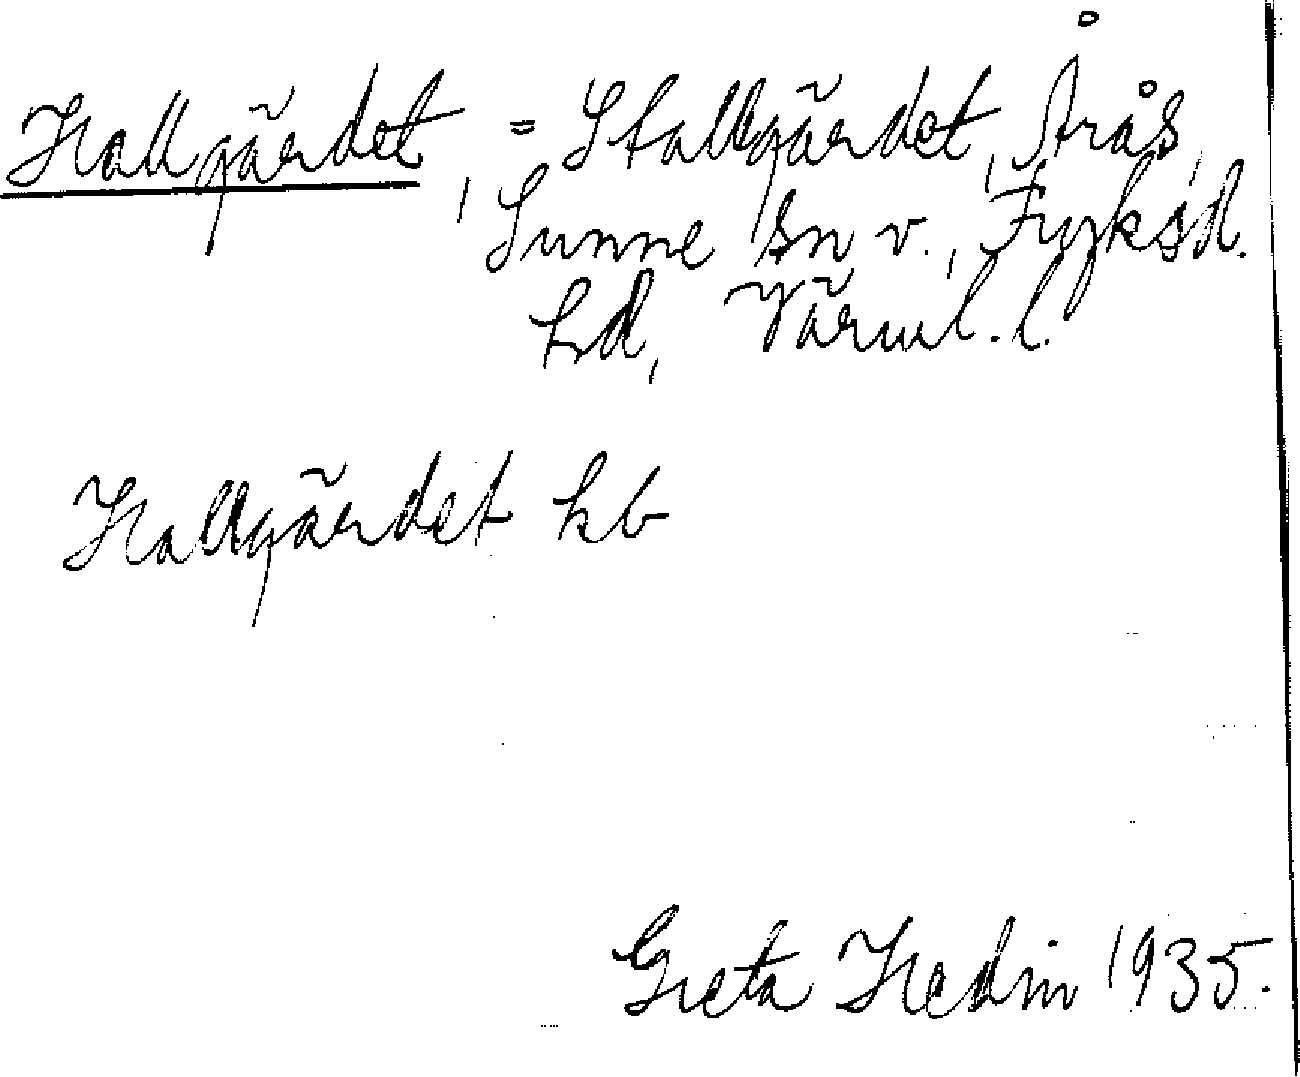 Hallgärdet, = Stallgärdet, Årås,
Sunne sn v., Fryksd.
hd, Värml. l.
Hallgärdet kb
Greta Hedin 1935.